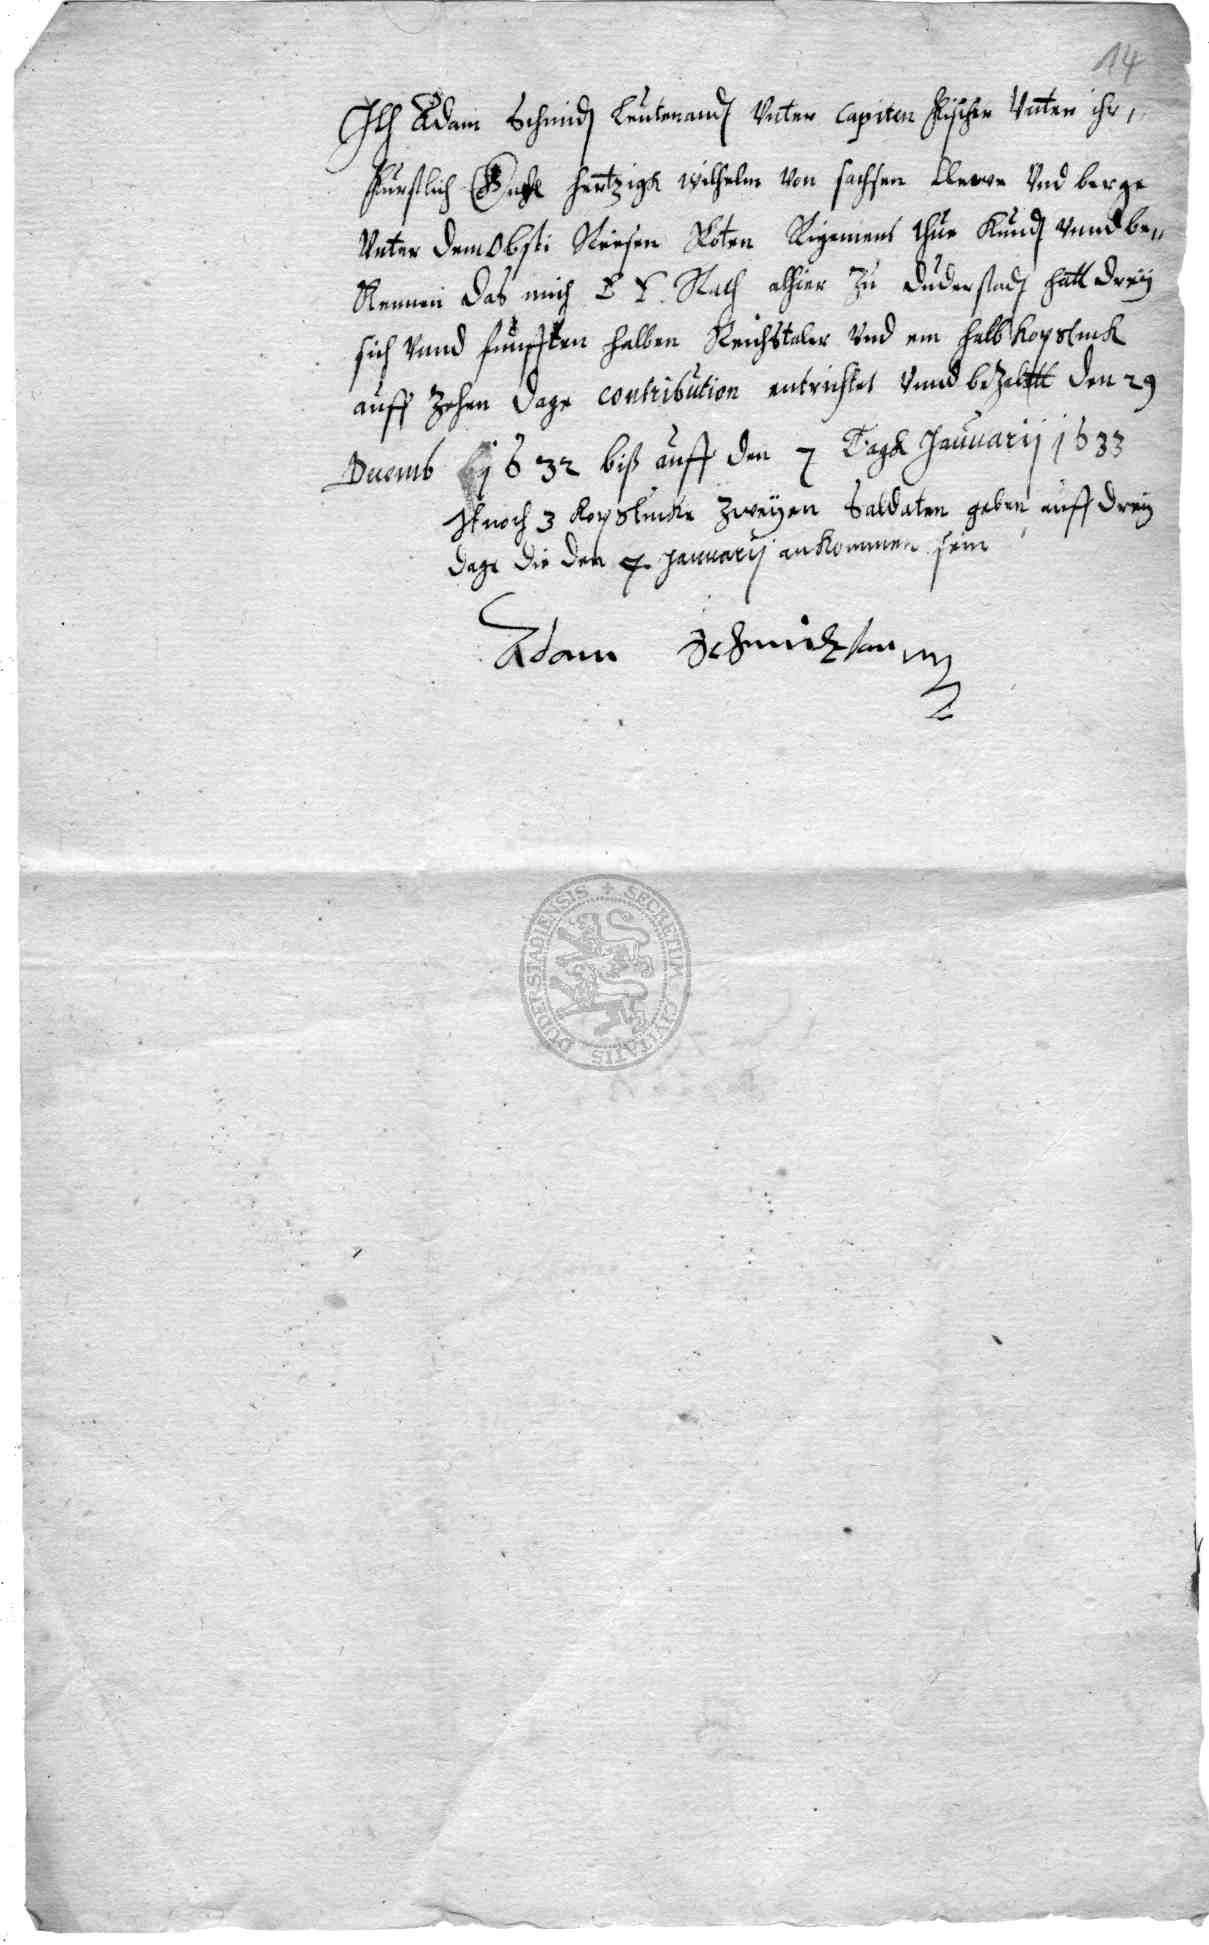 14
Ich Adam Schmidt Leutenandt Vnter Capiten Fischer Vnter ihr,
fürstlich Gnade hertzigk wilhelm Von sachsen Clewe Vnd berge
Vnter dem Obsti Riesen Roten Rigemens thue Kundt Vnnd be„
Kennen das mich E E. Rath alhier Zu duderstadt hatt dreij
sich Vnnd funfften halben Reichstaler Vnd ein halb Kopstuck
auff Zehen dage contribution entrichtet Vnnd beZalett den 29
Decemb 1632 biß auff den 7 Tagk Januarij 1633
It noch 3 Kopstucke Zweÿen Saldaten geben auff dreij
dage die den 7 Januarij anKommen sein
Adam Schmidt
SECRETUM CIVITATIS DUDERSTADIENSIS